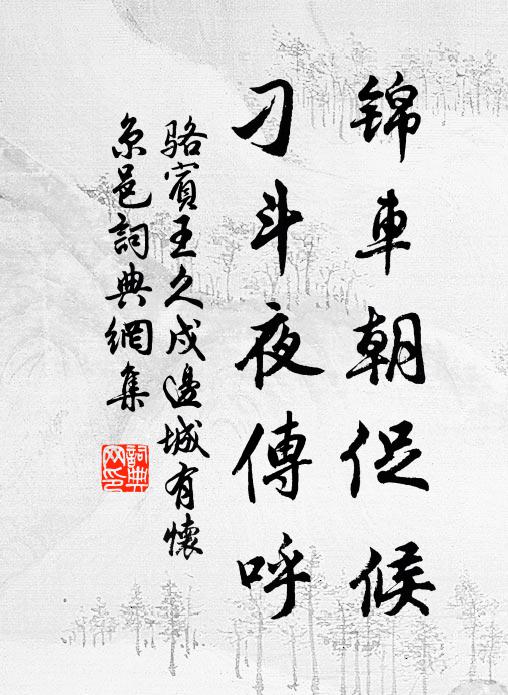 锦車朝促候
刁斗夜傳呼
骆賓王久戍邊城有懷
京邑詞典網集
詞典网印